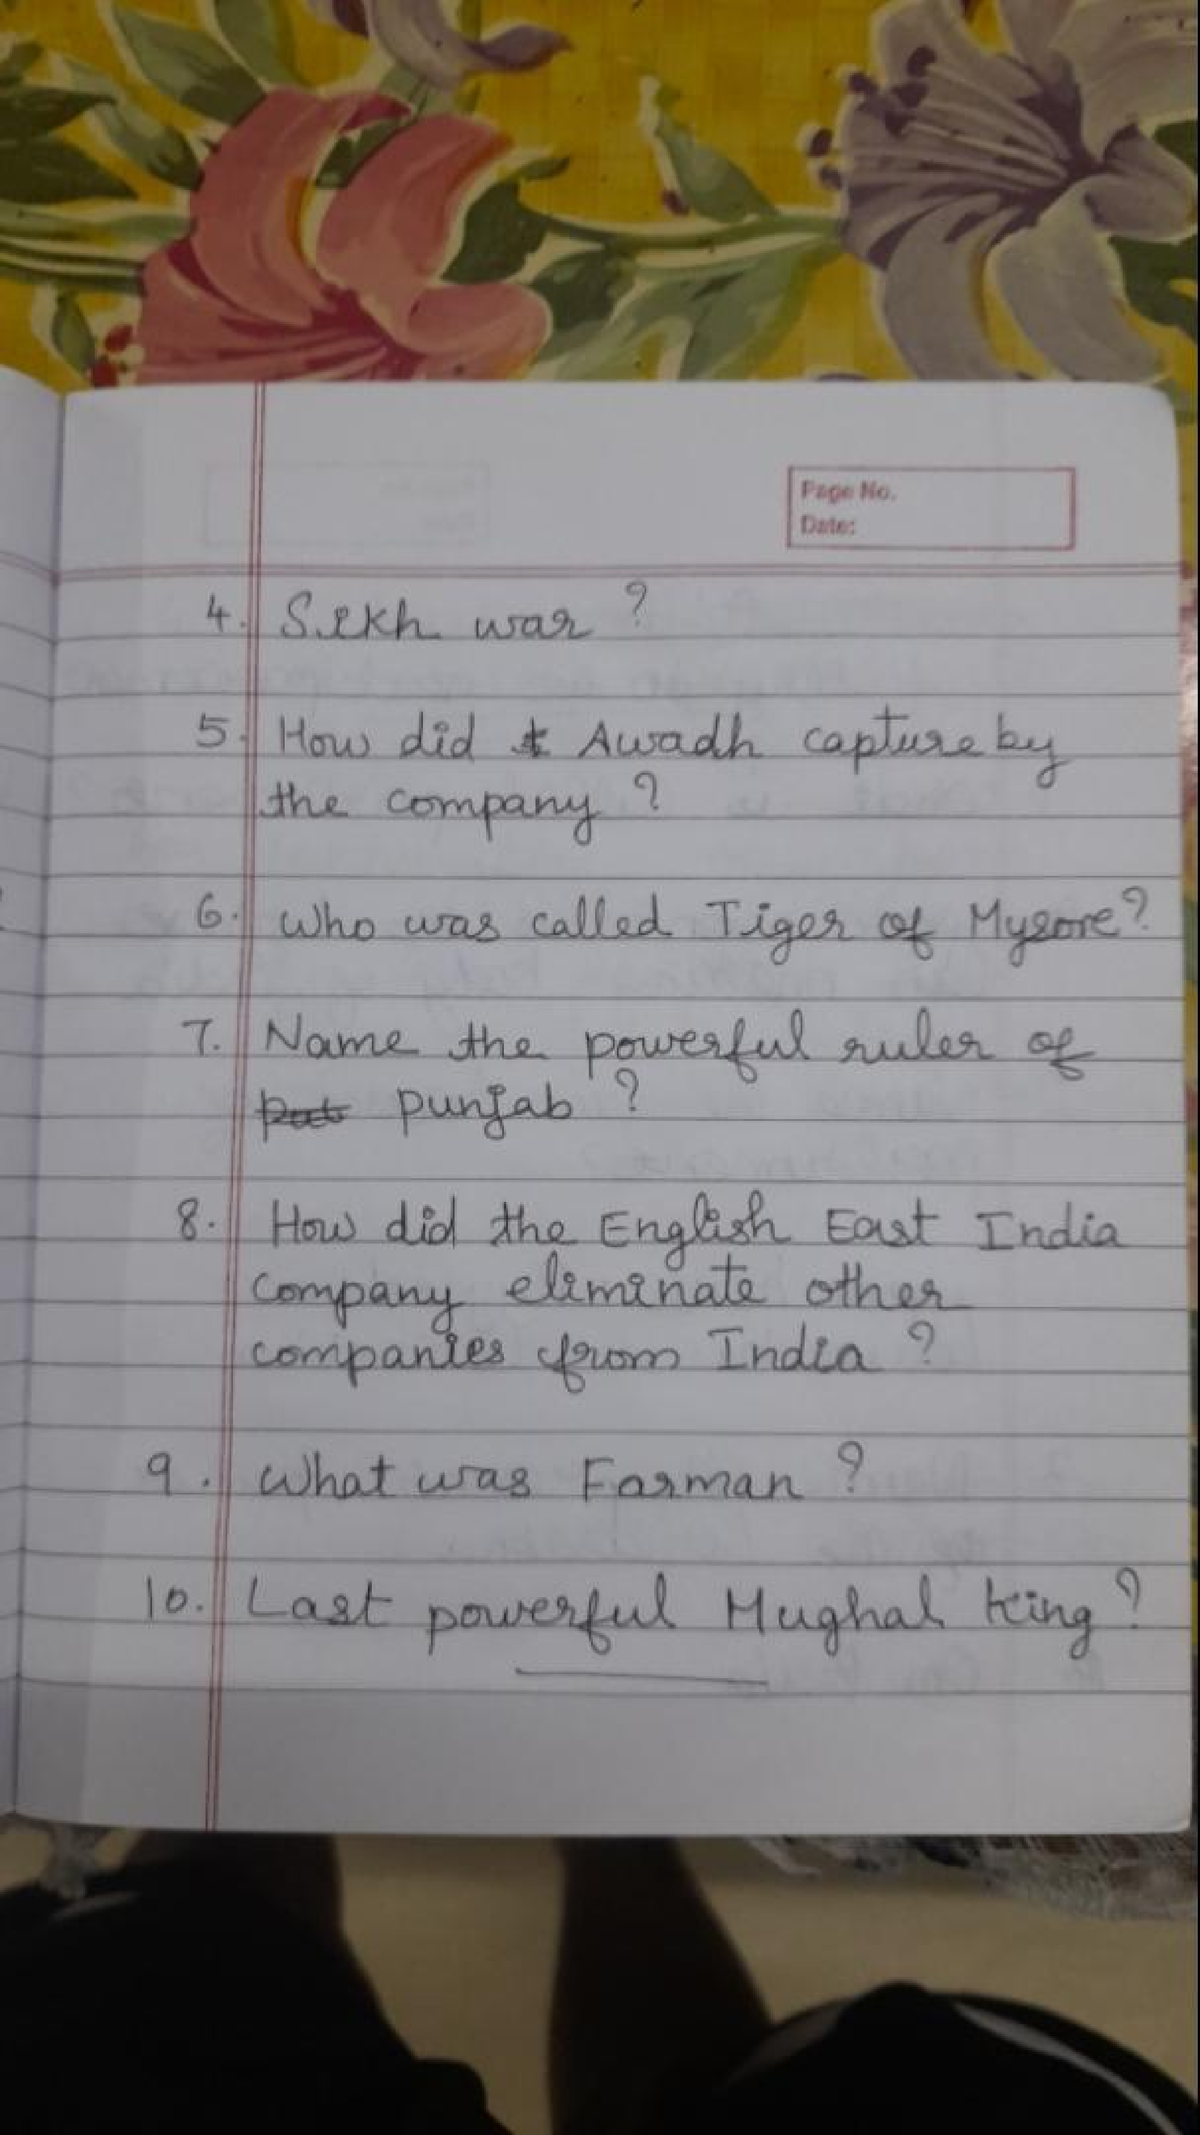 Page No.
Date:
4. Sikh war ?
5. How did Awadh capture by
the company ?
6. Who was called Tiger of Mysore?
7. Name the powerful ruler of
punjab ?
8. How did the English East India
company eliminate other
companies from India ?
9. What was Farman ?
10. Last powerful Mughal king ?